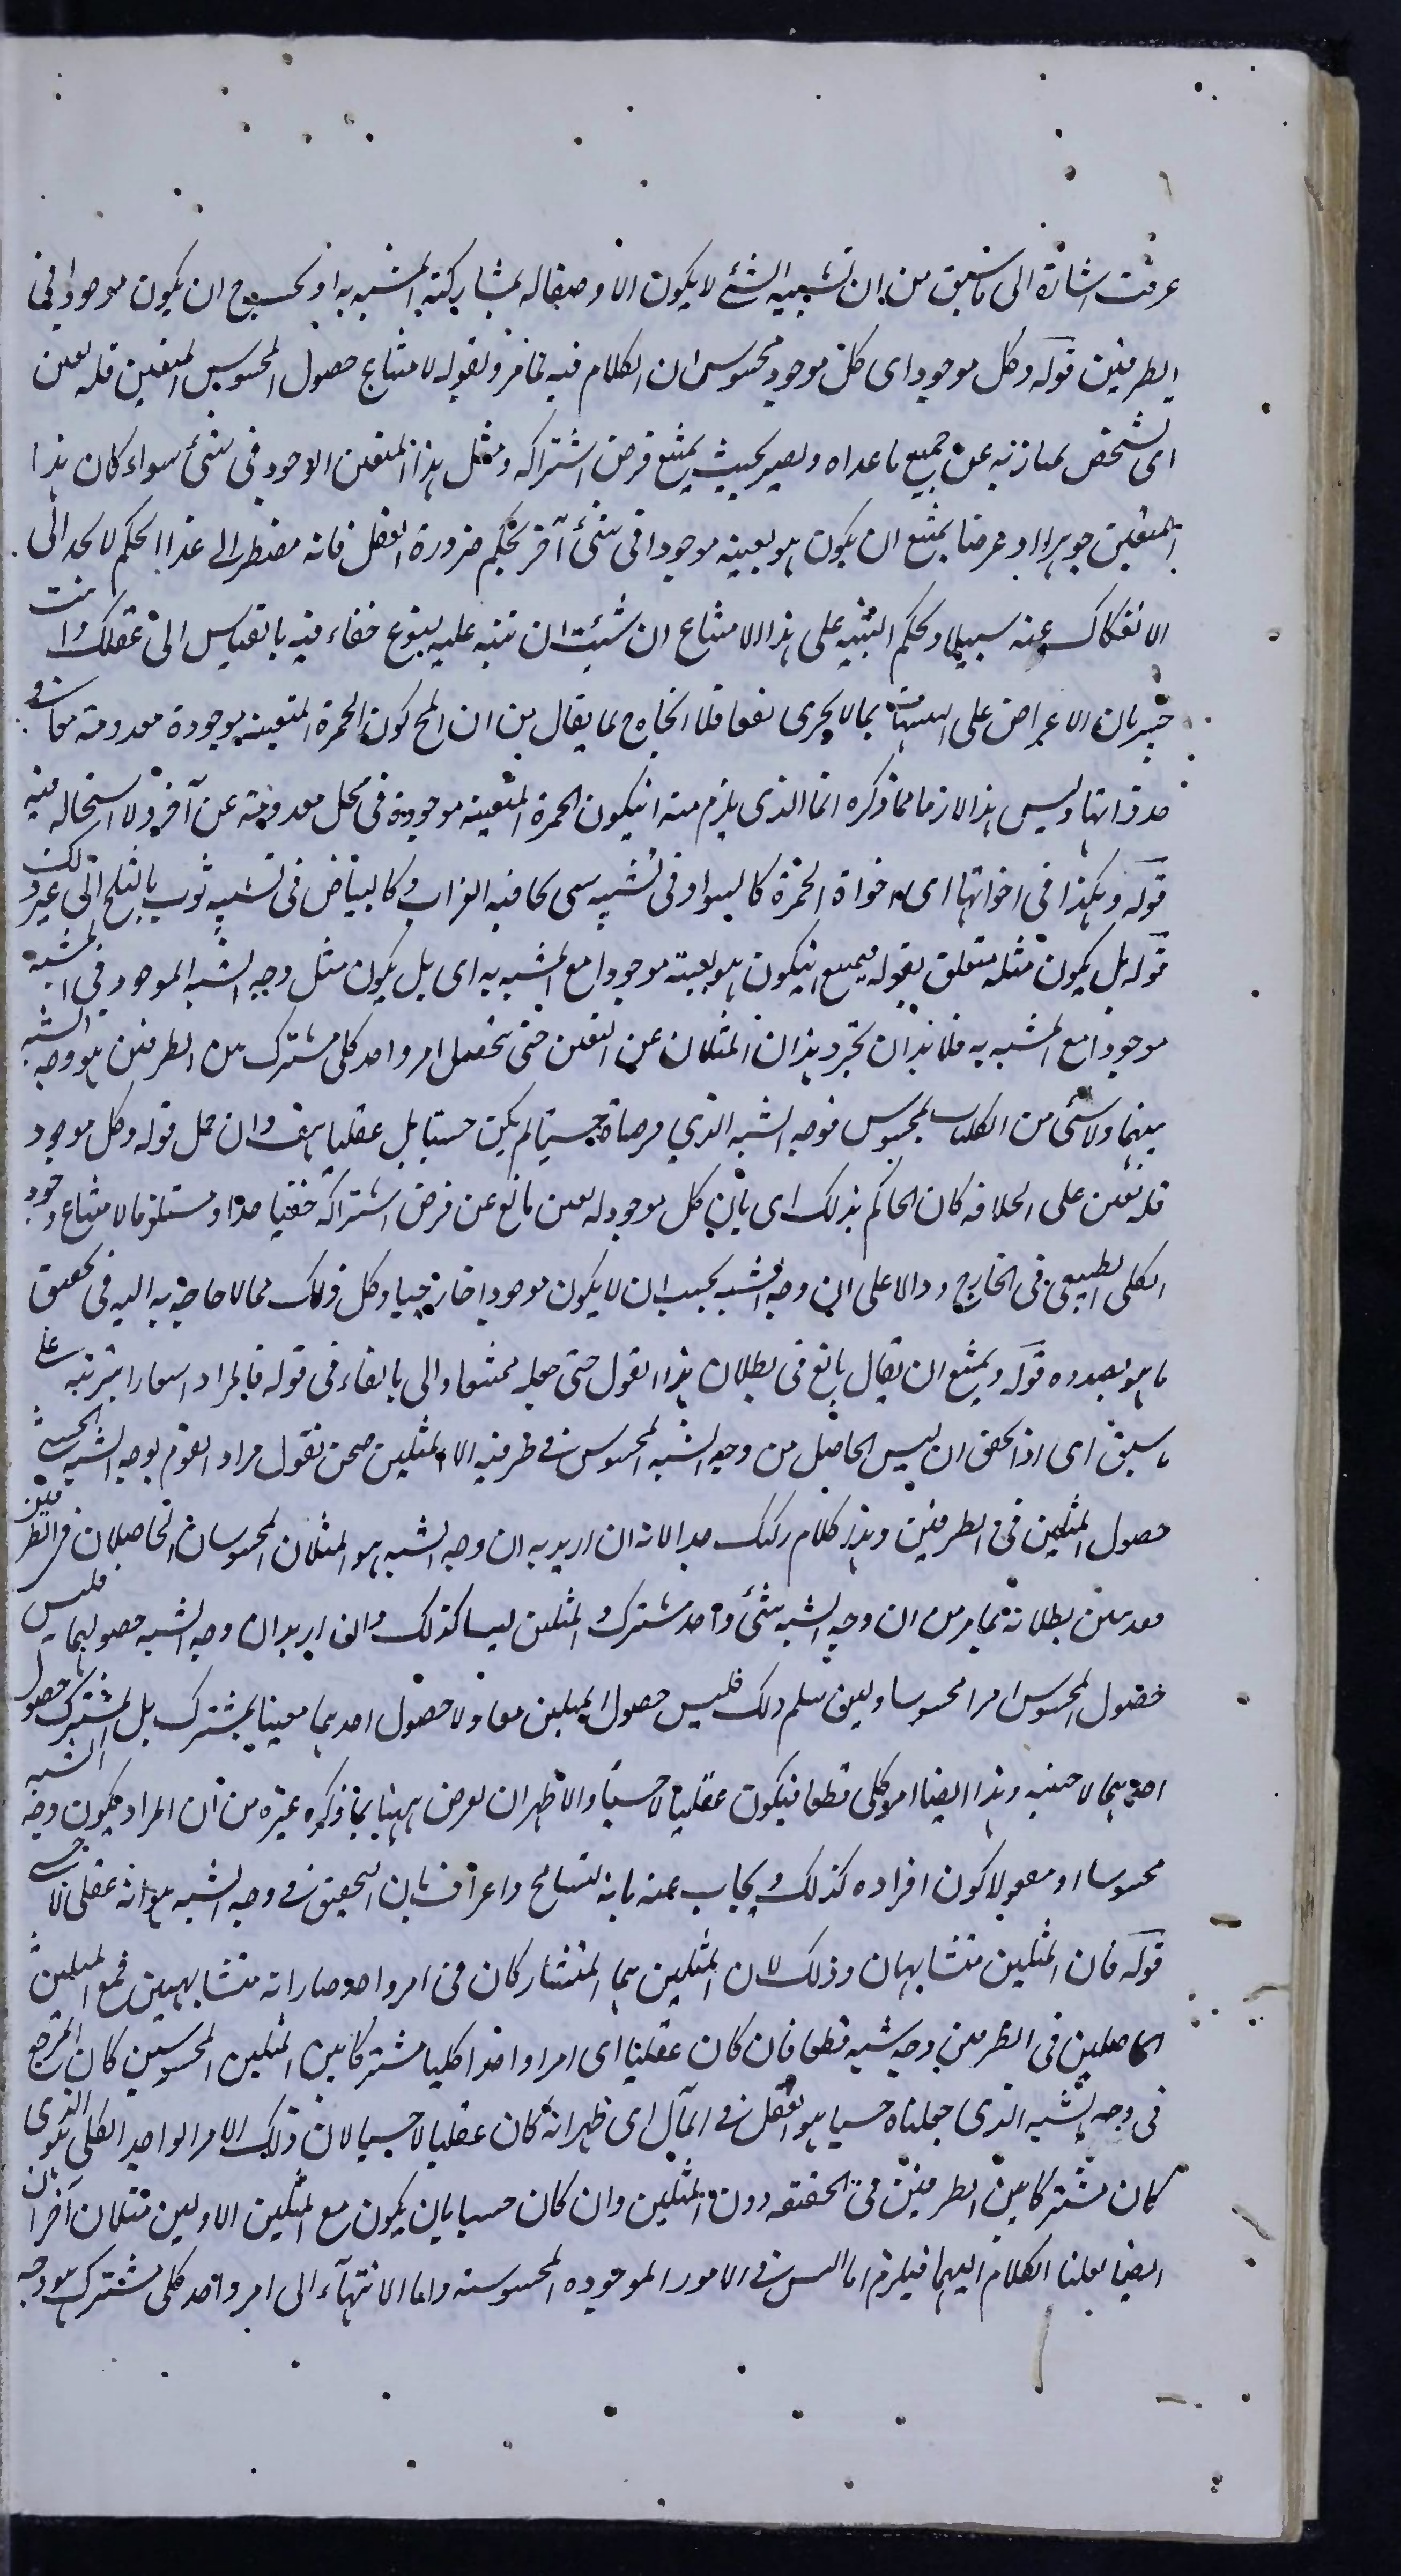 عرفت اشارة الى ما سبق من ان تشبيه الشئ لا يكون الا وصفا له بمشاركته المشبه به او بحسب ان يكون موجودا في
الطرفين قوله وكل موجود اى كل موجود محسوس ان الكلام فيه كما مر ولقوله لامتناع حصول المحسوس المتعين فله تعين
اى تشخص يمتاز به عن جميع ما عداه ويصير بحيث يمتنع فرض اشتراكه ومثل هذا المتعين الاوجود فى شئ سواء كان هذا
المتعين جوهرا او عرضا يمتنع ان يكون هو بعينه موجودا فى شئ آخر بحكم ضرورة العقل فانه مضطر الى هذا الحكم لا يجد الى
الانفكاك عنه سبيلا وبحكم التنبيه على هذا الامتناع ان شئت ان تنبه عليه بنوع خفاء فيه بالقياس الى عقلك وانت
خبير بان الاعتراض على التنبيهات بما لا يجرى نفعا فلا احتياج لما يقال من ان المح كون الحمرة المتعينة موجودة معدومة معا فى
حد ذاتها وليس هذا لازما مما ذكره انما الذى يلزم منه ان يكون الحمرة المتعينة موجودة فى محل معدومة عن آخر ولا استحالة فيه
قوله وهكذا فى اخواتها اى اخوات الحمرة كالسواد فى تشبيه شئ بحافيه الغراب وكالبياض فى تشبيه ثوب بالثلج الى غير ذلك
قوله بل يكون مثله متعلق بقوله يمتنع ان يكون هو بعينه موجودا مع المشبه به اى بل يكون مثل وجه الشبه الموجود فى المشبه
موجودا مع المشبه به فلابد ان يجرد هذان المثلان عن التعين حتى يتحصل امر واحد كلى مشترك بين الطرفين هو وجه الشبه
بينهما ولا شئ من الكليات بمحسوس فوجه الشبه الذي فرضناه حسيا لم يكن حسيا بل عقليا هف وان حمل قوله وكل موجود
فله تعين على اطلاقه كان الحاكم بذلك اى بان كل موجود له تعين مانع عن فرض اشتراكه خفيا جدا ومستلزما لامتناع وجود
الكلى الطبيعى فى الخارج ودالا على ان وجه الشبه يجب ان لا يكون موجودا خارجيا وكل ذلك مما لا حاجة به اليه فى تحقيق
ما هو بصدده قوله ويمتنع ان يقال بالغ فى بطلان هذا القول حتى جعله ممتنعا واتى بالفاء فى قوله فالمراد اشعارا بترتبه على
ما سبق اى اذا تحقق ان ليس الحاصل من وجه الشبه المحسوس فى طرفيه الا المثلين صح ان نقول مراد القوم بوجه الشبه الحسى
حصول المثلين فى الطرفين وهذا كلام ركيك جدا لانه ان اريد به ان وجه الشبه هو المثلان المحسوسان الحاصلان فى الطرفين
فقد تبين بطلانه بما مر من ان وجه الشبه شئ واحد مشترك والمثلين ليسا كذلك وان اريد ان وجه الشبه حصولهما فليس
حصول المحسوس امرا محسوسا ولئن سلم ذلك فليس حصول المثلين معا ولا حصول احدهما معينا بمشترك بل المشترك حصول
احدهما لا بعينه وهذا ايضا امر كلى قطعا فيكون عقليا لا حسيا والاظهر ان نعرض ههنا بما ذكره غيره من ان المراد بكون وجه الشبه
محسوسا او معقولا كون افراده كذلك ويجاب عنه بانه تسامح واعتراف بان التحقيق فى وجه الشبه هو انه عقلى لا حسى
قوله فان المثلين متشابهان وذلك لان المثلين هما المتشاركان فى امر واحد صارا به متشابهين فمع المثلين
الحاصلين فى الطرفين وجه شبه قطعا فان كان عقليا اى امرا واحدا كليا مشتركا بين المثلين المحسوسين كان المرجع
فى وجه الشبه الذى جعلناه حسيا هو العقل فى المآل اى ظهر انه كان عقليا لا حسيا لان ذلك الامر الواحد الكلى هو الذى
كان مشتركا بين الطرفين فى الحقيقة دون المثلين وان كان حسيا بان يكون مع المثلين الاولين مثلان آخران
ايضا نقلنا الكلام اليهما فيلزم اما التس فى الامور الموجودة المحسوسة واما الانتهآء الى امر واحد كلى مشترك هو وجه